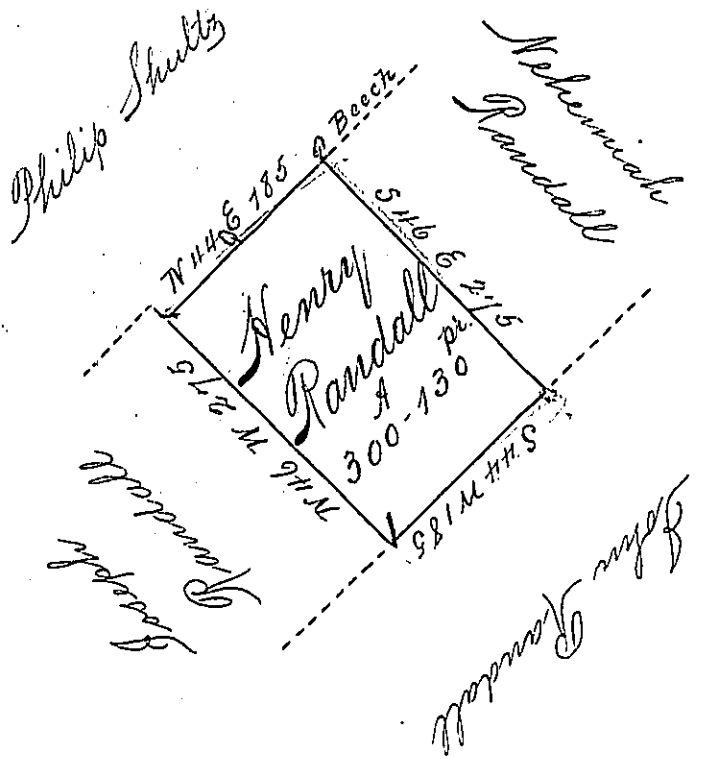 Philip Shultz
Nehemiah
Randall
Beech
N 44 E 185
S 46 E 275
Henry
Randall
A pr.
300-130
N 46 W 275
S 44 W 185
Joseph
Randall
John Randall